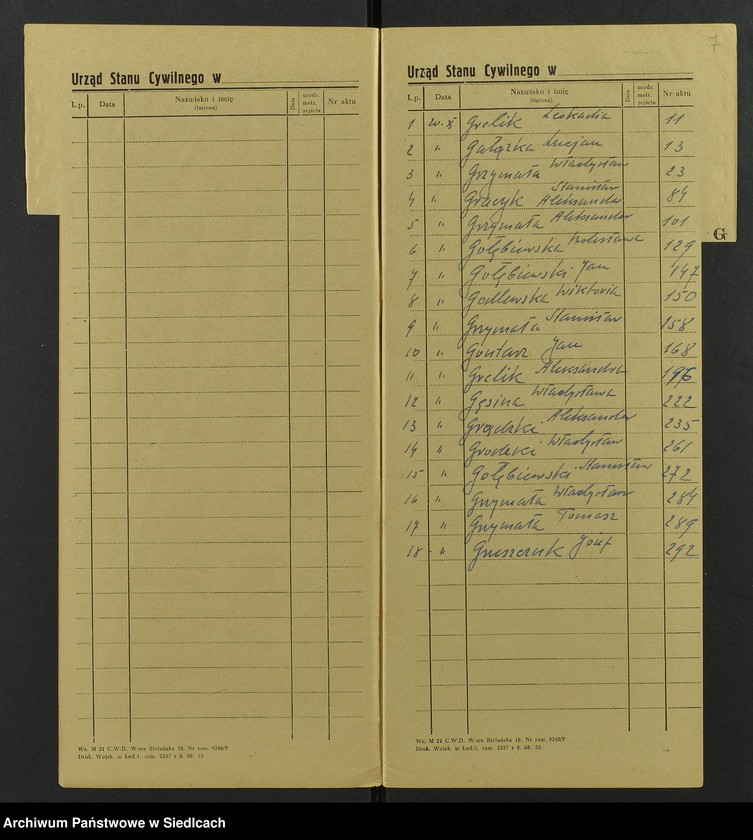 Urząd Stanu Cywilnego w
L.p. Data Nazwisko i imię (imiona) Data urodz. małż. zejścia Nr aktu
Wz. M 21 C.W.D. W-wa Bielańska 18. Nr zam. 9248/P
Druk. Wojsk. w Łodzi, zam. 2537 z 8. 08. 53.
7
Urząd Stanu Cywilnego w
L.p. Data Nazwisko i imię (imiona) Data urodz. małż. zejścia Nr aktu
1 Grelik Leokadia 11
2 " Gałązka Lucjan 13
3 " Grzymała Władysław 23
Stanisław
4 " Gracyk Aleksander 84
5 " Grzymała Aleksander 101
6 " Gołębiewska Bolesława 129
7 " Gołębiewski Jan 147
8 " Godlewska Wiktoria 150
9 " Grzymała Stanisław 158
10 " Gontarz Jan 168
11 " Grelik Aleksandra 196
12 " Gęsina Władysława 222
13 " Grądzki Aleksander 235
14 " Grodzki Władysław 261
15 " Gołębiewski Stanisław 272
16 " Grzymała Władysław 284
17 " Grzymała Tomasz 289
18 " Józef 292
G
Wz. M 21 C.W.D. W-wa Bielańska 18. Nr zam. 9248/P
Druk. Wojsk. w Łodzi, zam. 2537 z 8. 08. 53.
Archiwum Państwowe w Siedlcach